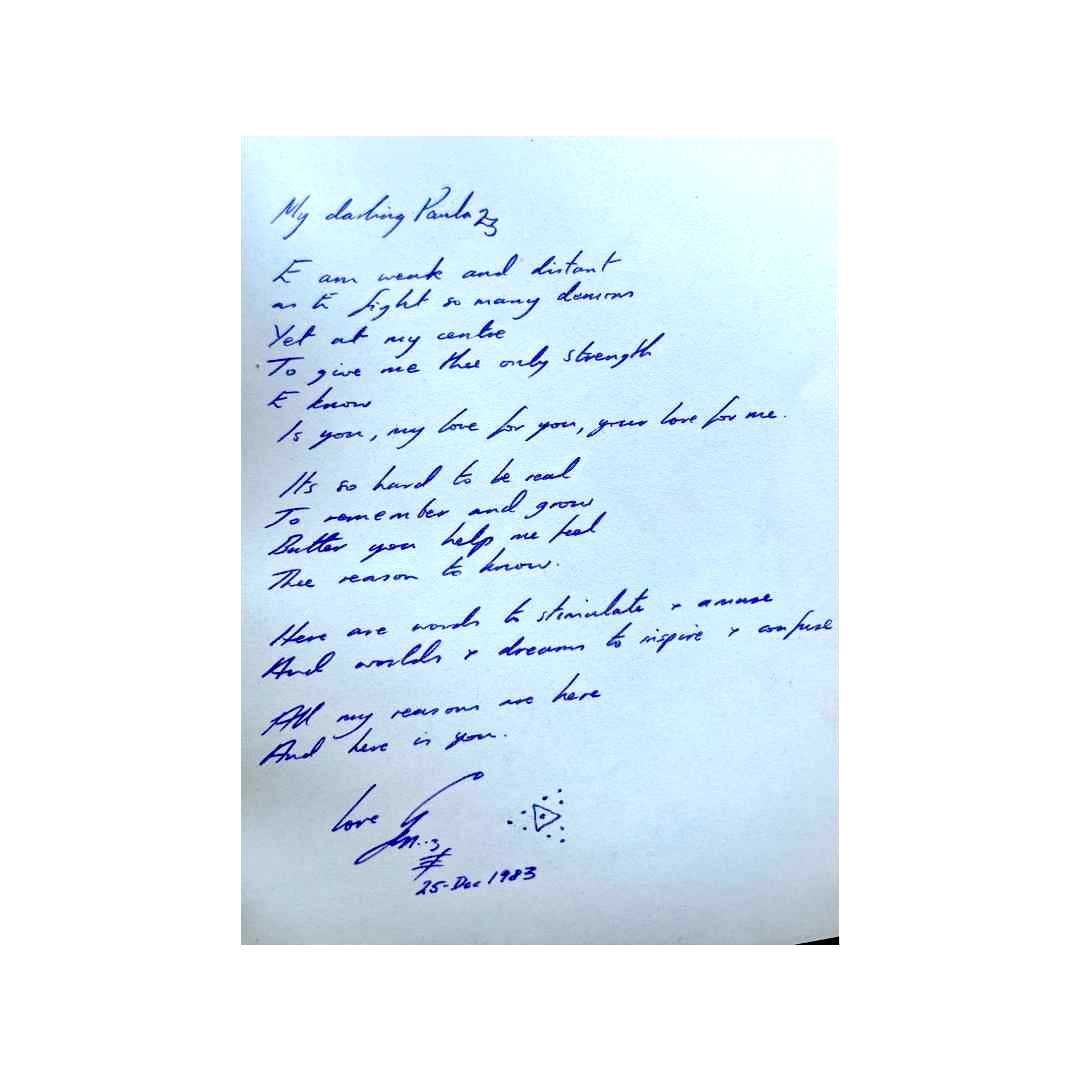 My darling Paula 23
E am weak and distant
as E fight so many demons
Yet at my centre
To give me thee only strength
E know
Is you, my love for you, your love for me.
Its so hard to be real
To remember and grow
Butter you help me feel
Thee reason to know.
Here are words to stimulate + amuse
And worlds + dreams to inspire + confuse
All my reasons are here
And here is you.
love
25-Dec 1983